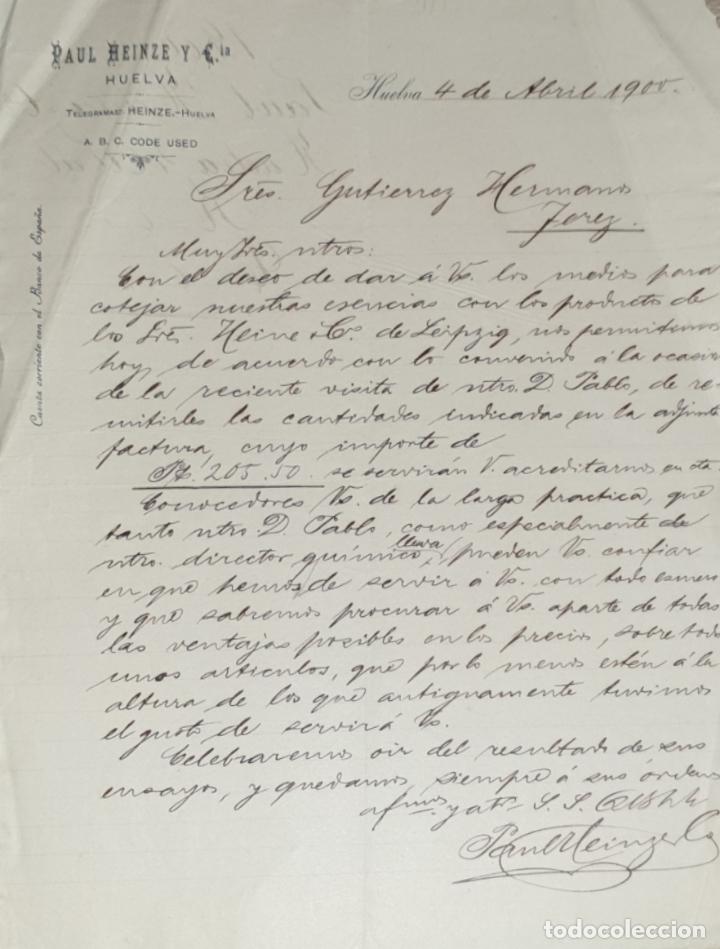 PAUL HEINZE Y C.ia
HUELVA
TELEGRAMAS: HEINZE.-HUELVA
A. B. C. CODE USED
Cuenta corriente con el Banco de España.
Huelva 4 de Abril 1900.
Sres. Gutierrez Hermanos
Jerez.
Muy Sres. ntros:
Con el deseo de dar á Vs. los medios para
cotejar nuestras esencias con los products de
los Sres. Heine & Co. de Leipzig, nos permitimos
hoy, de acuerdo con lo convenido á la ocasio
de la reciente visita de ntro. D. Pablo, de re
mitirles las cantidades indicadas en la adjunta
factura, cuyo importe de
Pts. 205.50. se servirán V. acreditarnos en cta.
Conocedores Vs. de la larga practica, que
tanto ntro. D. Pablo, como especialmente de
ntro. director químico lleva, pueden Vs. confiar
en que hemos de servir á Vs. con todo esmero
y que sabremos procurar á Vs. aparte de todas
las ventajas posibles en los precios, sobre todo
unos articulos, que por lo menos estén á la
altura de los que antiguamente tuvimos
el gusto de servir á Vs.
Celebraremos oir del resultado de sus
ensayos, y quedamos siempre á sus órdenes
afmos y atts. S. S.
Paul Heinze & Co
todocoleccion